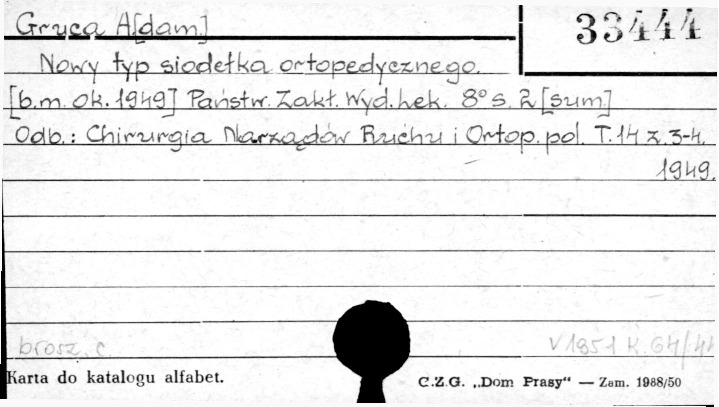 Gruca A[dam]
33444
Nowy typ siodełka ortopedycznego.
[b.m. ok. 1949] Państw. Zakł. Wyd. Lek. 8° s. 2 [sum]
Odb.: Chirurgia Narządów Ruchu i Ortop. pol. T. 14 z. 3-4.
1949.
brosz. c. V 1851 K. 64/44
Karta do katalogu alfabet. C.Z.G. „Dom Prasy“ — Zam. 1988/50